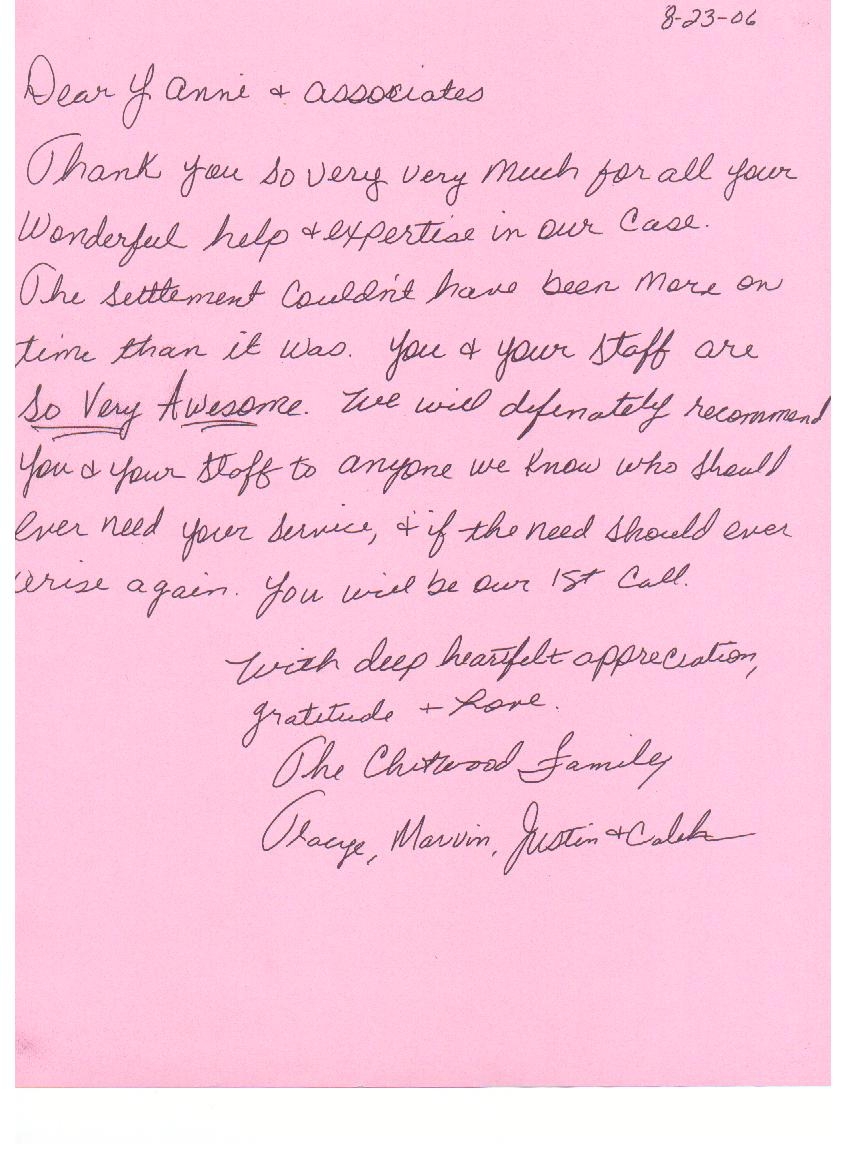 8-23-06
Dear Y Anne & associates
Thank you so very very much for all your
Wonderful help & expertise in our Case.
The settlement Couldn't have been More on
time than it was. You & your staff are
So Very Awesome. We will definately recommend
you & your staff to anyone we know who should
ever need your service, & if the need should ever
arise again. You will be our 1st Call.
With deep heartfelt appreciation,
gratitude + Love.
The Chitwood Family
Tracye, Marvin, Justin & Caleb